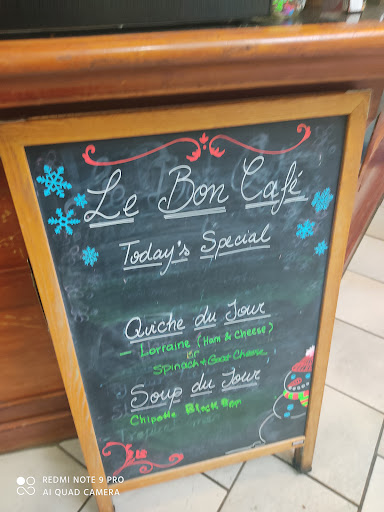 Le Bon Café
Today's Special
Quiche du Jour
- Lorraine (Ham & Cheese)
or
Spinach & Goat Cheese
Soup du Jour
Chipotle Black Bean
REDMI NOTE 9 PRO
AI QUAD CAMERA